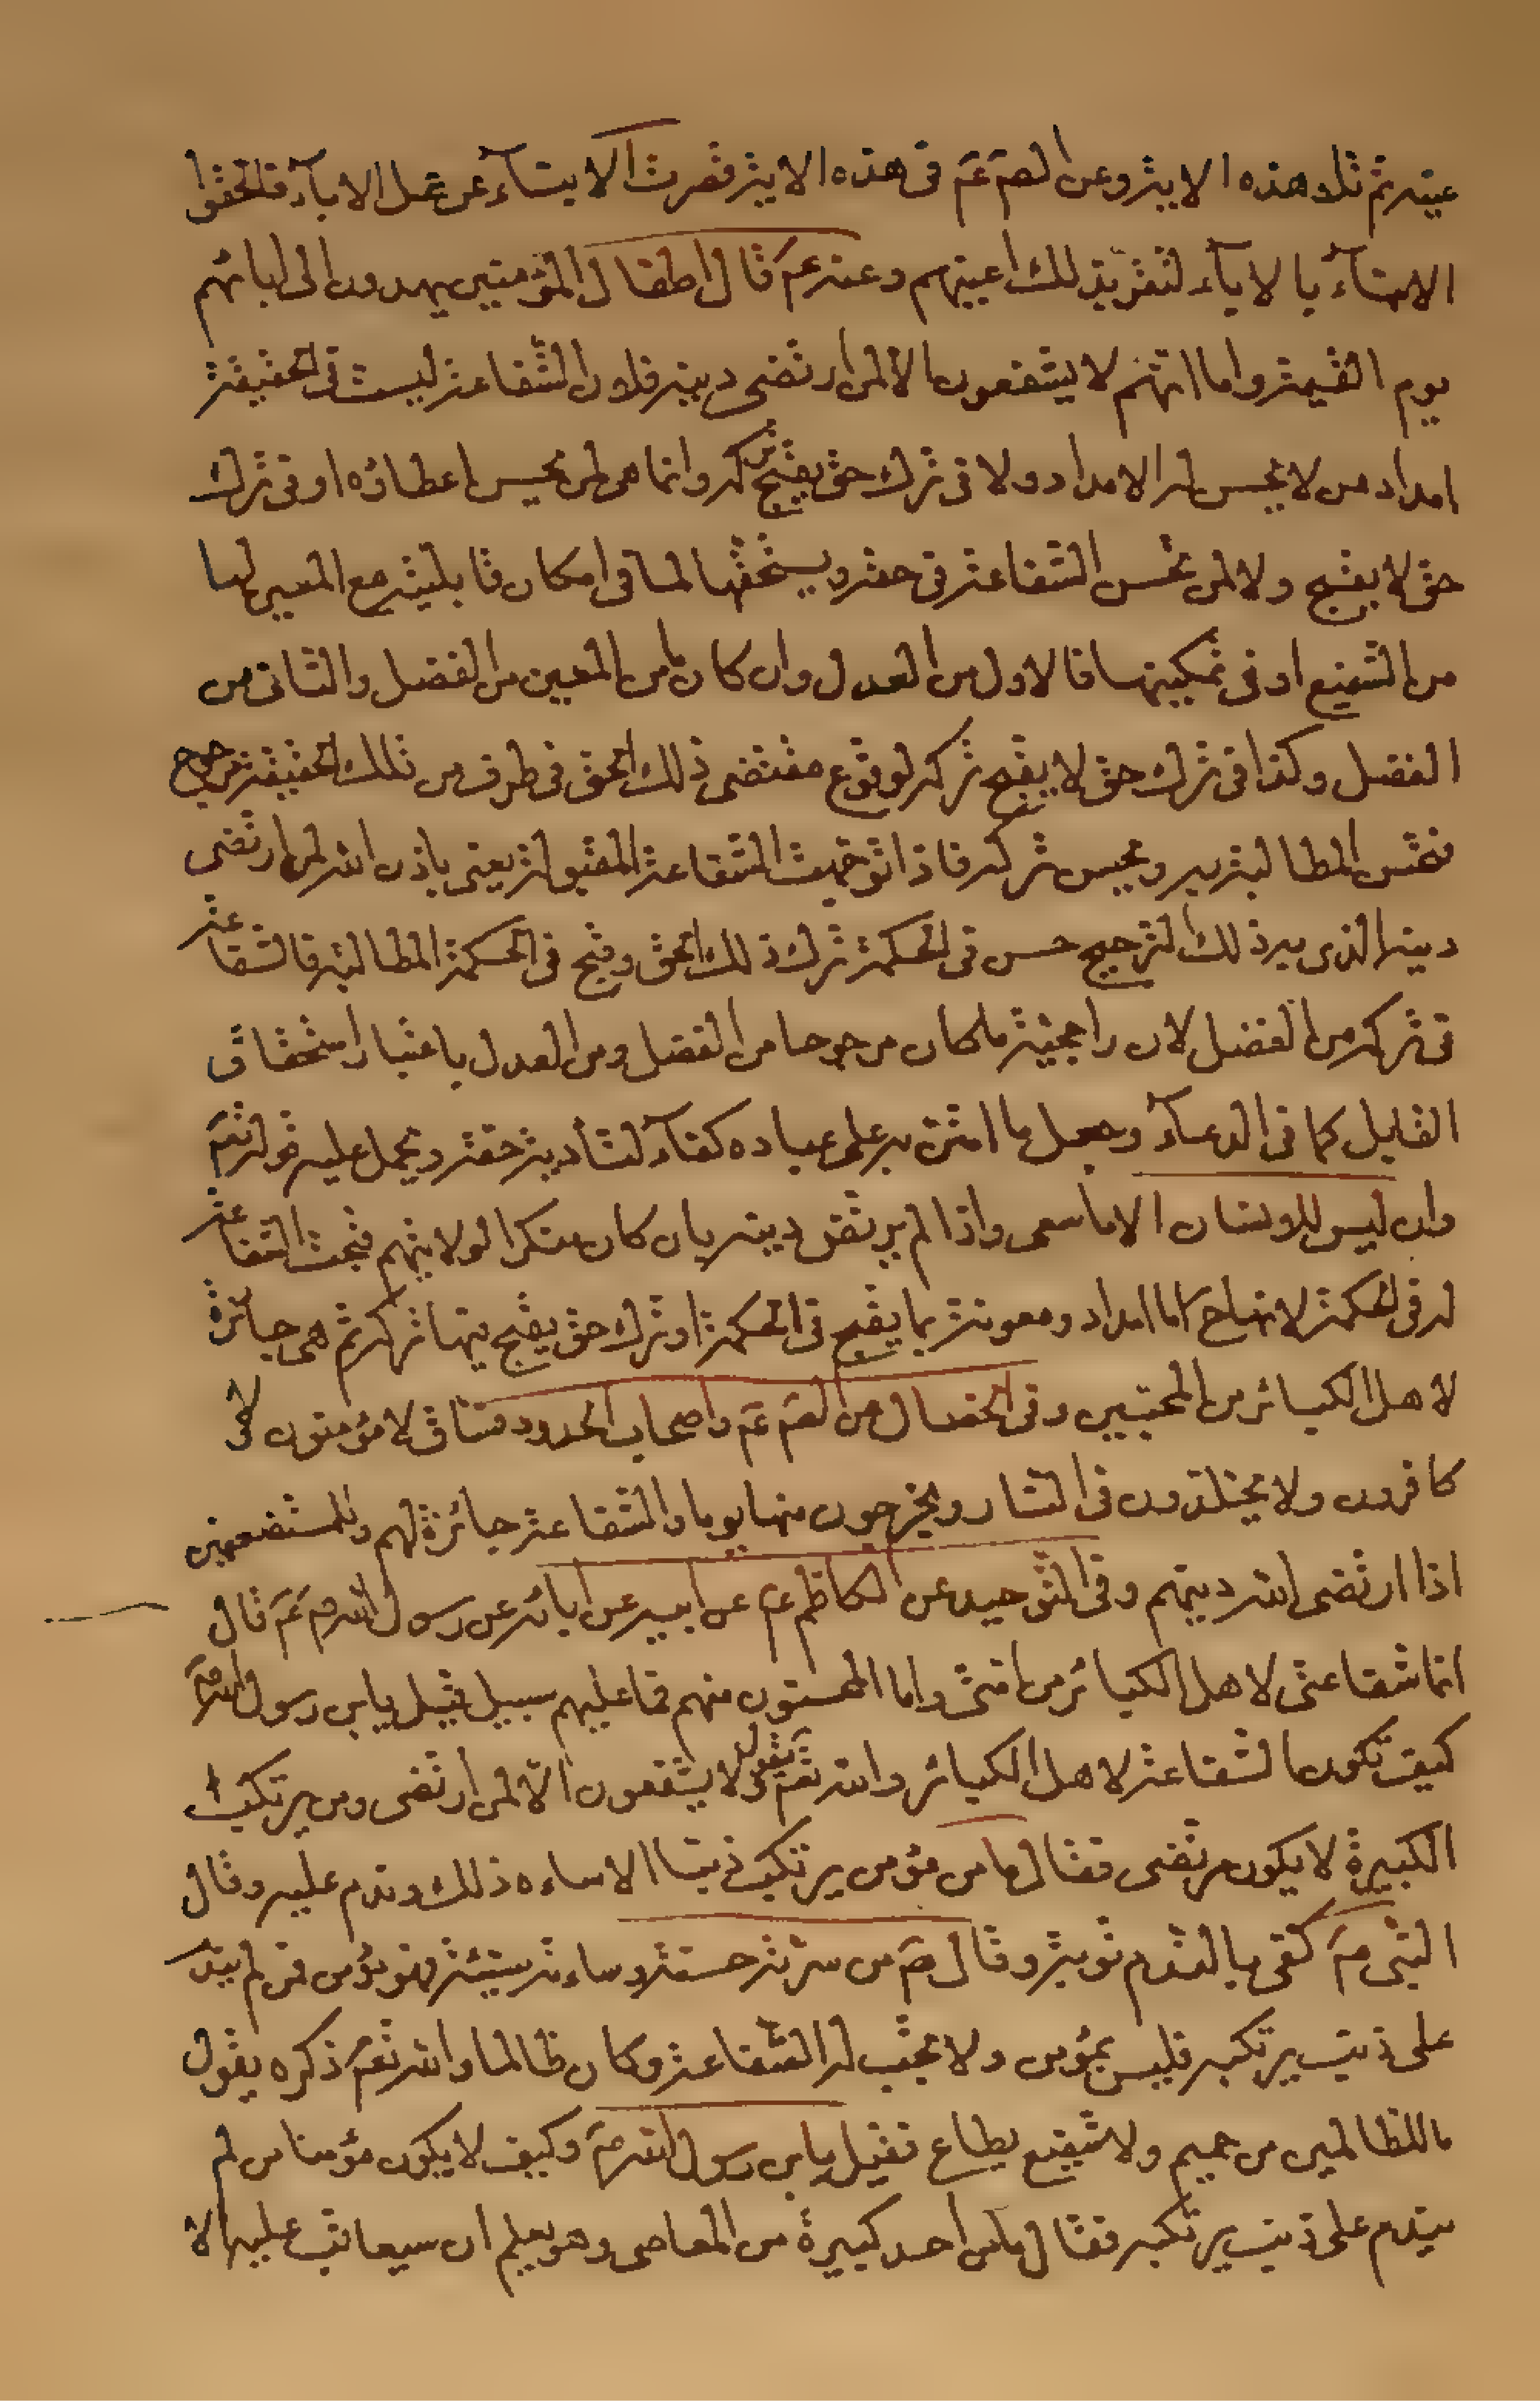 عينه ثم تلا هذه الاية وعن الصم عم فى هذه الاية قصرت الابناء عن عمل الاباء فالحقوا
الابناء بالاباء لتقر بذلك اعينهم وعنه عم قال اطفال المؤمنين يهدون الى ابائهم
يوم القيمة واما انهم لا يشفعون الا لمن ارتضى دينه فلان الشفاعة ليست فى الحقيقة
امداد من لا يحسن له الامداد ولا فى ترك حق يقبح تركه وانما هى لمن يحسن اعطاؤه او فى ترك
حق لا يقبح ولا لمن تحسن الشفاعة فى حقه ويستحقها لما فى امكان قابليته مع المعين لها
من الشفيع او فى تمكينها فالاول من العدل وان كان من المعين من الفضل والثانى من
الفضل وكذا فى ترك حق لا يقبح تركه لوقوع مقتضى ذلك الحق فى طرف من تلك الحقيقة مرجوح
فتحسن المطالبة به ويحسن تركه فاذا توجهت الشفاعة المقبولة يعنى باذن الله لمن ارتضى
دينه الذى به ذلك الترجيح حسن فى الحكمة ترك ذلك الحق وقبح فى الحكمة المطالبة فالشفاعة
فى تركه من الفضل لان راجحيته ما كان مرجوحا من الفضل ومن العدل باعتبار استحقاق
القابل كما فى الدعاء وجعل ما امتن به على عباده كفاء لتأدية حقه ويحمل عليه قوله تعم
وان ليس للانسان الا ما سعى واذا لم يرتض دينه بان كان منكرا لولايتهم قبحت الشفاعة
له فى الحكمة لانها ح اما امداد ومعونة بما يقبح فى الحكمة او ترك حق يقبح فيها تركه ثم هى جائزة
لاهل الكبائر من المحبين وفى الخصال من الصم عم واصحاب الحدود فساق لا مؤمنون لا
كافرون ولا يخلدون فى النار ويخرجون منها يوما والشفاعة جائزة لهم وللمستضعفين
اذا ارتضى الله دينهم وفى التوحيد عن الكاظم عم عن ابيه عن ابائه عن رسول الله صم عم قال
انما شفاعتى لاهل الكبائر من امتى واما المحسنون منهم فما عليهم سبيل قيل يابن رسول الله صم
كيف تكون الشفاعة لاهل الكبائر والله تعم يقول ولا يشفعون الا لمن ارتضى ومن يرتكب
الكبيرة لا يكون مرتضى فقال ما من مؤمن يرتكب ذنبا الا ساءه ذلك وندم عليه وقال
النبى صم كفى بالندم توبة وقال صم من سرته حسنته وساءته سيئته فهو مؤمن فمن لم يندم
على ذنب يرتكبه فليس بمؤمن ولا تجب له الشفاعة وكان ظالما والله تعم ذكره يقول
ما للظالمين من حميم ولا شفيع يطاع فقيل يابن رسول الله صم وكيف لا يكون مؤمنا من لم
يندم على ذنب يرتكبه فقال ما من احد كبيرة من المعاصى وهو يعلم ان سيعاقب عليها الا